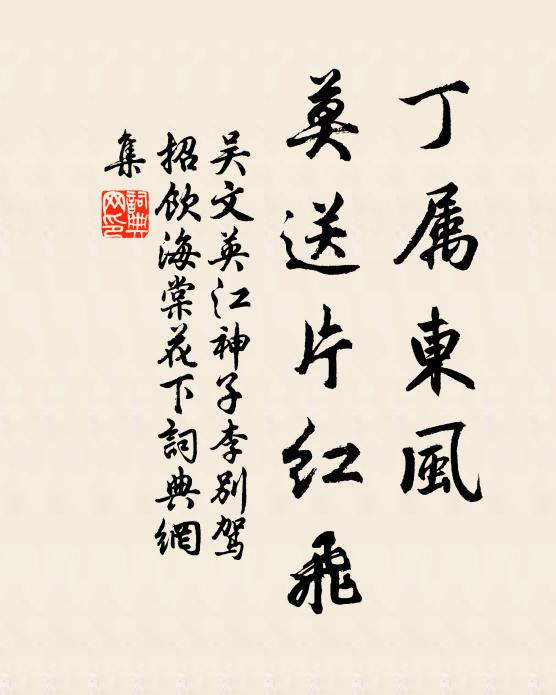 丁属東風
莫送片红飛
吴文英江神子李别駕
招飲海棠花下詞典網
集
詞典
网印